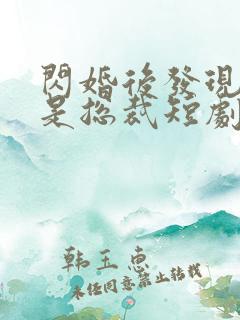 閃婚後發現
是総裁短劇
韩玉惠
未经同意禁止转载